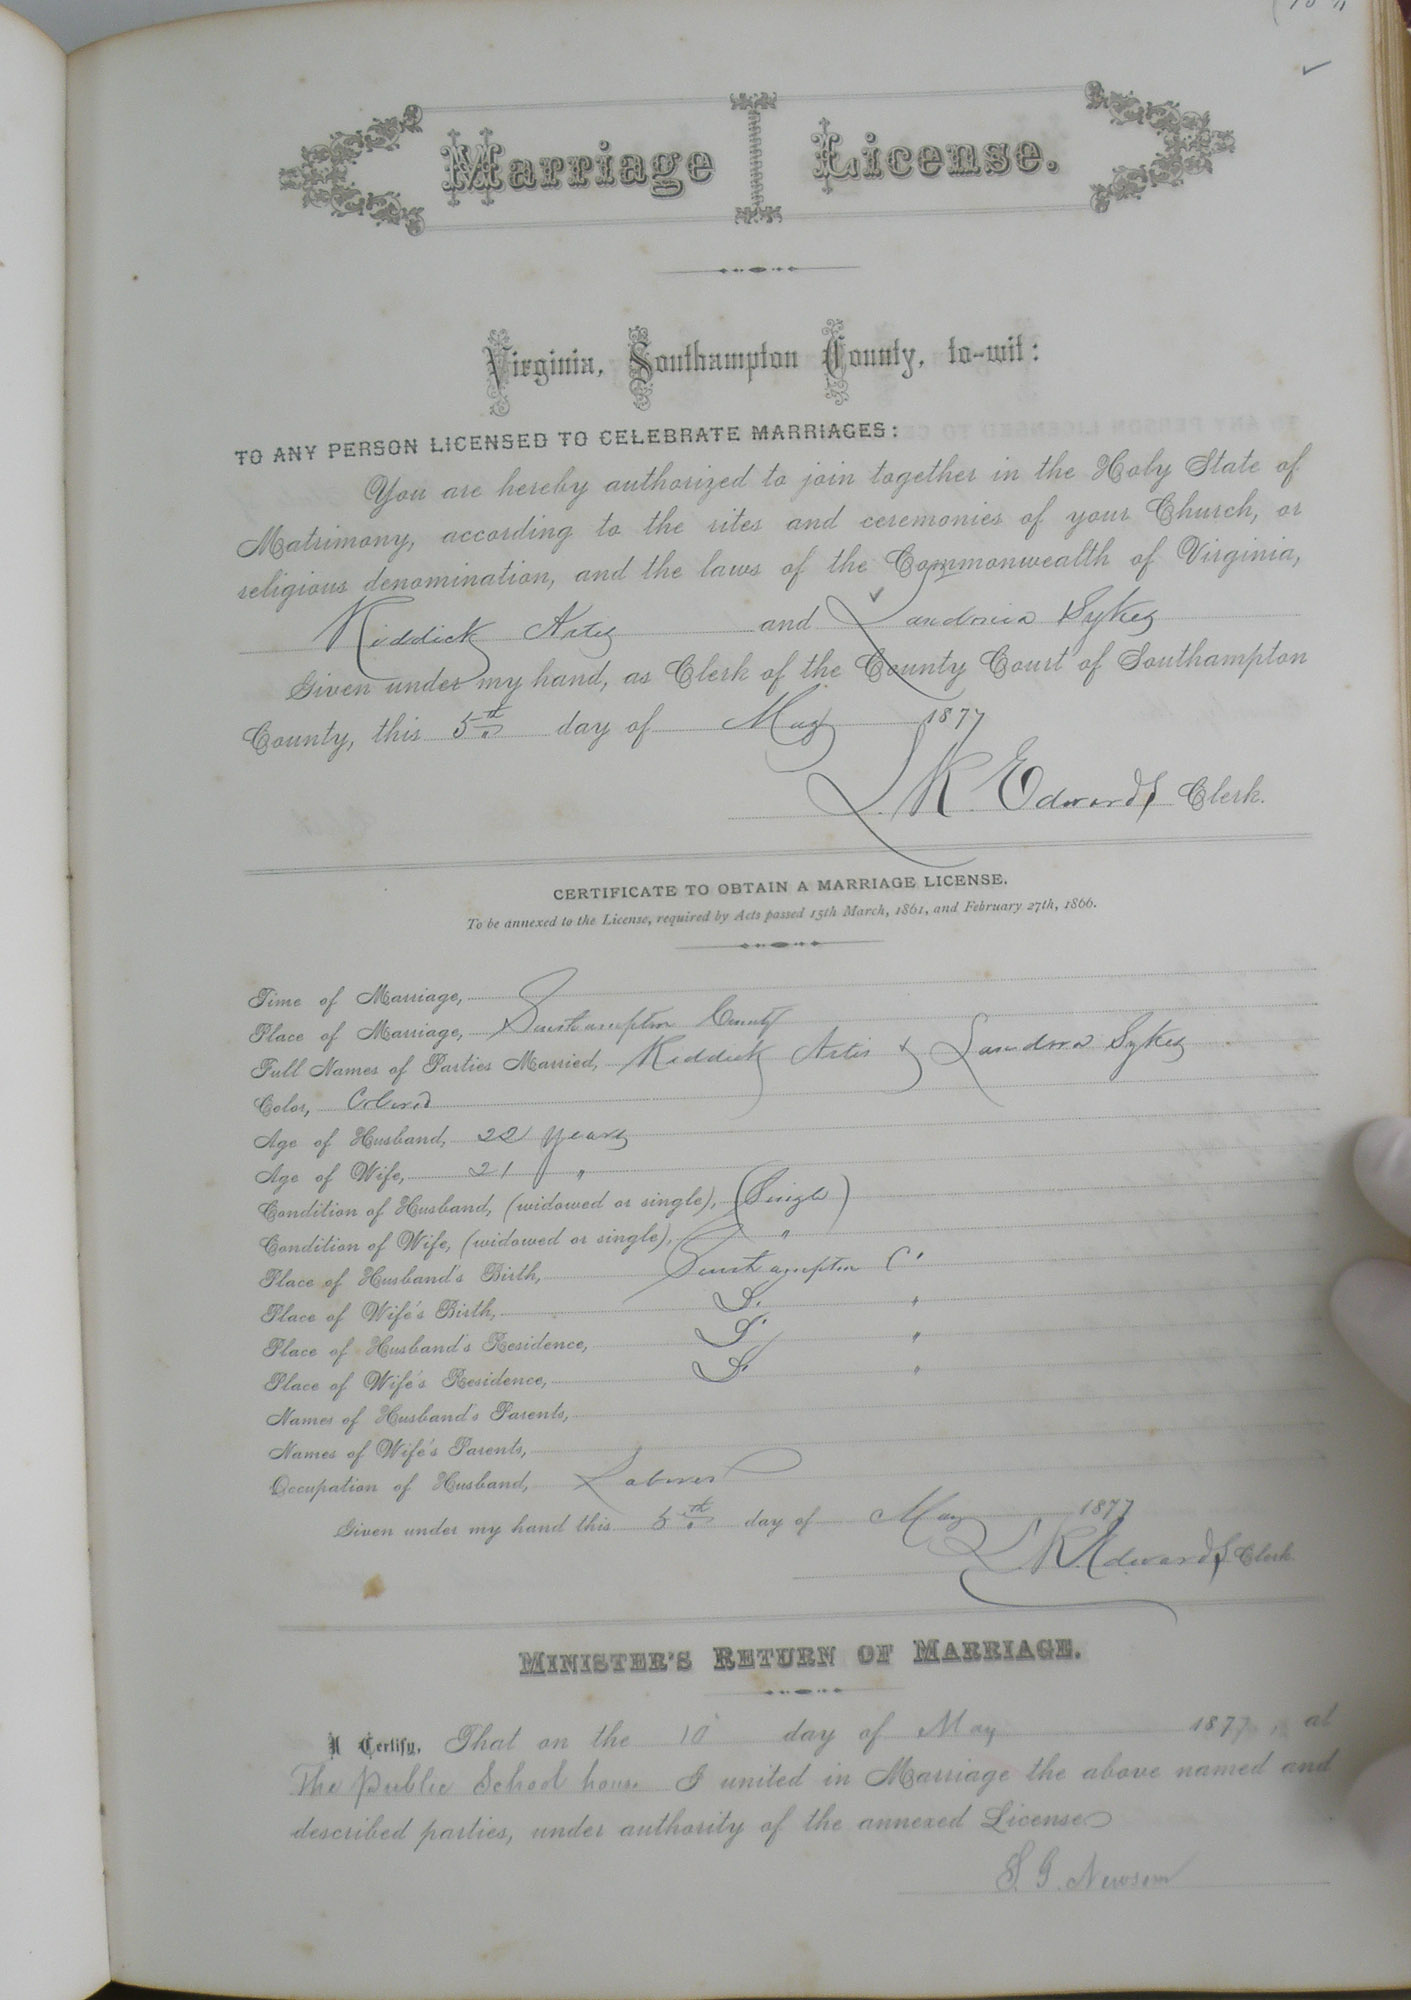 Marriage License.
Virginia, Southampton County, to-wit:
TO ANY PERSON LICENSED TO CELEBRATE MARRIAGES:
You are hereby authorized to join together in the Holy State of
Matrimony, according to the rites and ceremonies of your Church, or
religious denomination, and the laws of the Commonwealth of Virginia,
Riddick Artis and Landonia Sykes
Given under my hand, as Clerk of the County Court of Southampton
County, this 5th day of May 1877
L. R. Edwards Clerk.
CERTIFICATE TO OBTAIN A MARRIAGE LICENSE.
To be annexed to the License, required by Acts passed 15th March, 1861, and February 27th, 1866.
Time of Marriage,
Place of Marriage, Southampton County
Full Names of Parties Married, Riddick Artis & Sykes
Color, Colored
Age of Husband, 22 years
Age of Wife, 21 "
Condition of Husband, (widowed or single), (Single)
Condition of Wife, (widowed or single), "
Place of Husband's Birth, Southampton C'
Place of Wife's Birth, S. "
Place of Husband's Residence, S. "
Place of Wife's Residence, S. "
Names of Husband's Parents,
Names of Wife's Parents,
Occupation of Husband, Laborer
Given under my hand this 5th day of May 1877
L. R. Edwards Clerk.
MINISTER'S RETURN OF MARRIAGE.
I Certify, That on the 10 day of May 1877, at
The Public School house I united in Marriage the above named and
described parties, under authority of the annexed License
S. G. Newsom